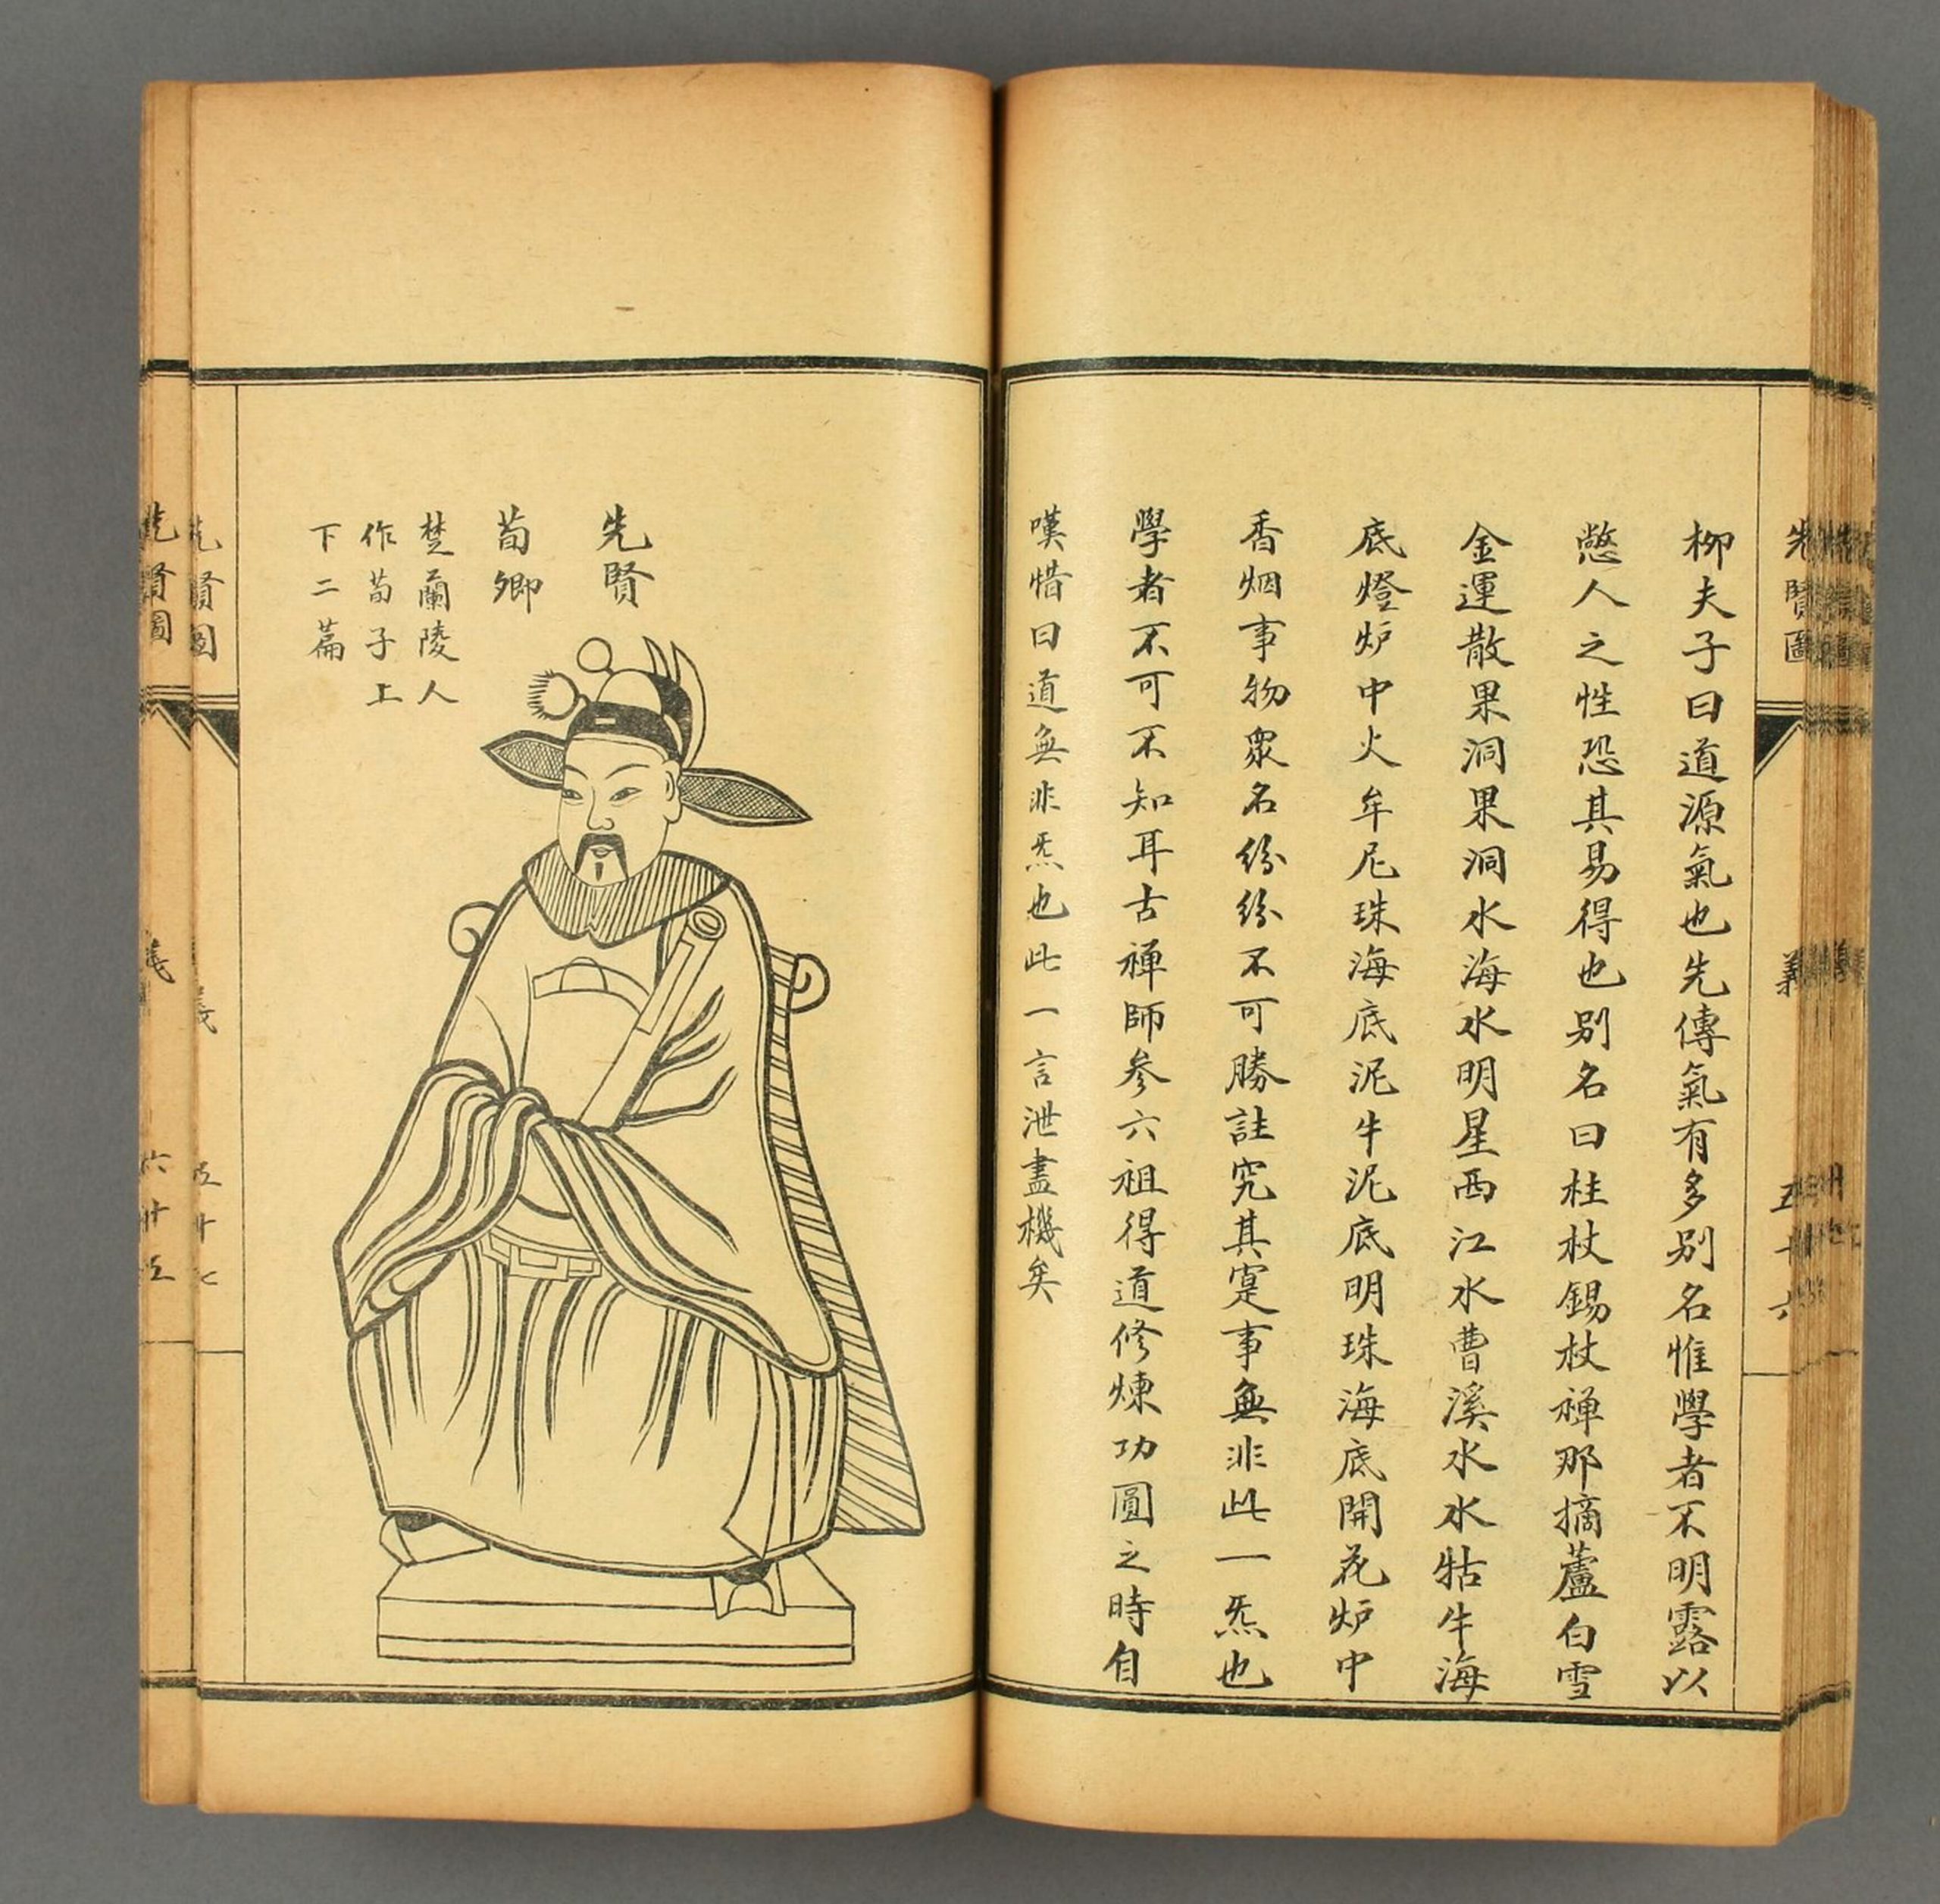 先賢圖
義
五十六
柳夫子曰道源氣也先傳氣有多别名惟學者不明露以
憋人之性恐其易得也别名曰柱杖錫杖禅那摘蘆白雪
金運散果洞果洞水海水明星西江水曹溪水水牯牛海
底燈炉中火牟尼珠海底泥牛泥底明珠海底開花炉中
香烟事物衆名紛紛不可勝註究其寔事無非此一炁也
學者不可不知耳古禅師参六祖得道修煉功圓之時自
嘆惜曰道無非炁也此一言泄盡機矣
先賢
荀卿
楚蘭陵人
作荀子上
下二篇
先賢圖
義
五十七
先賢圖
義
六十五